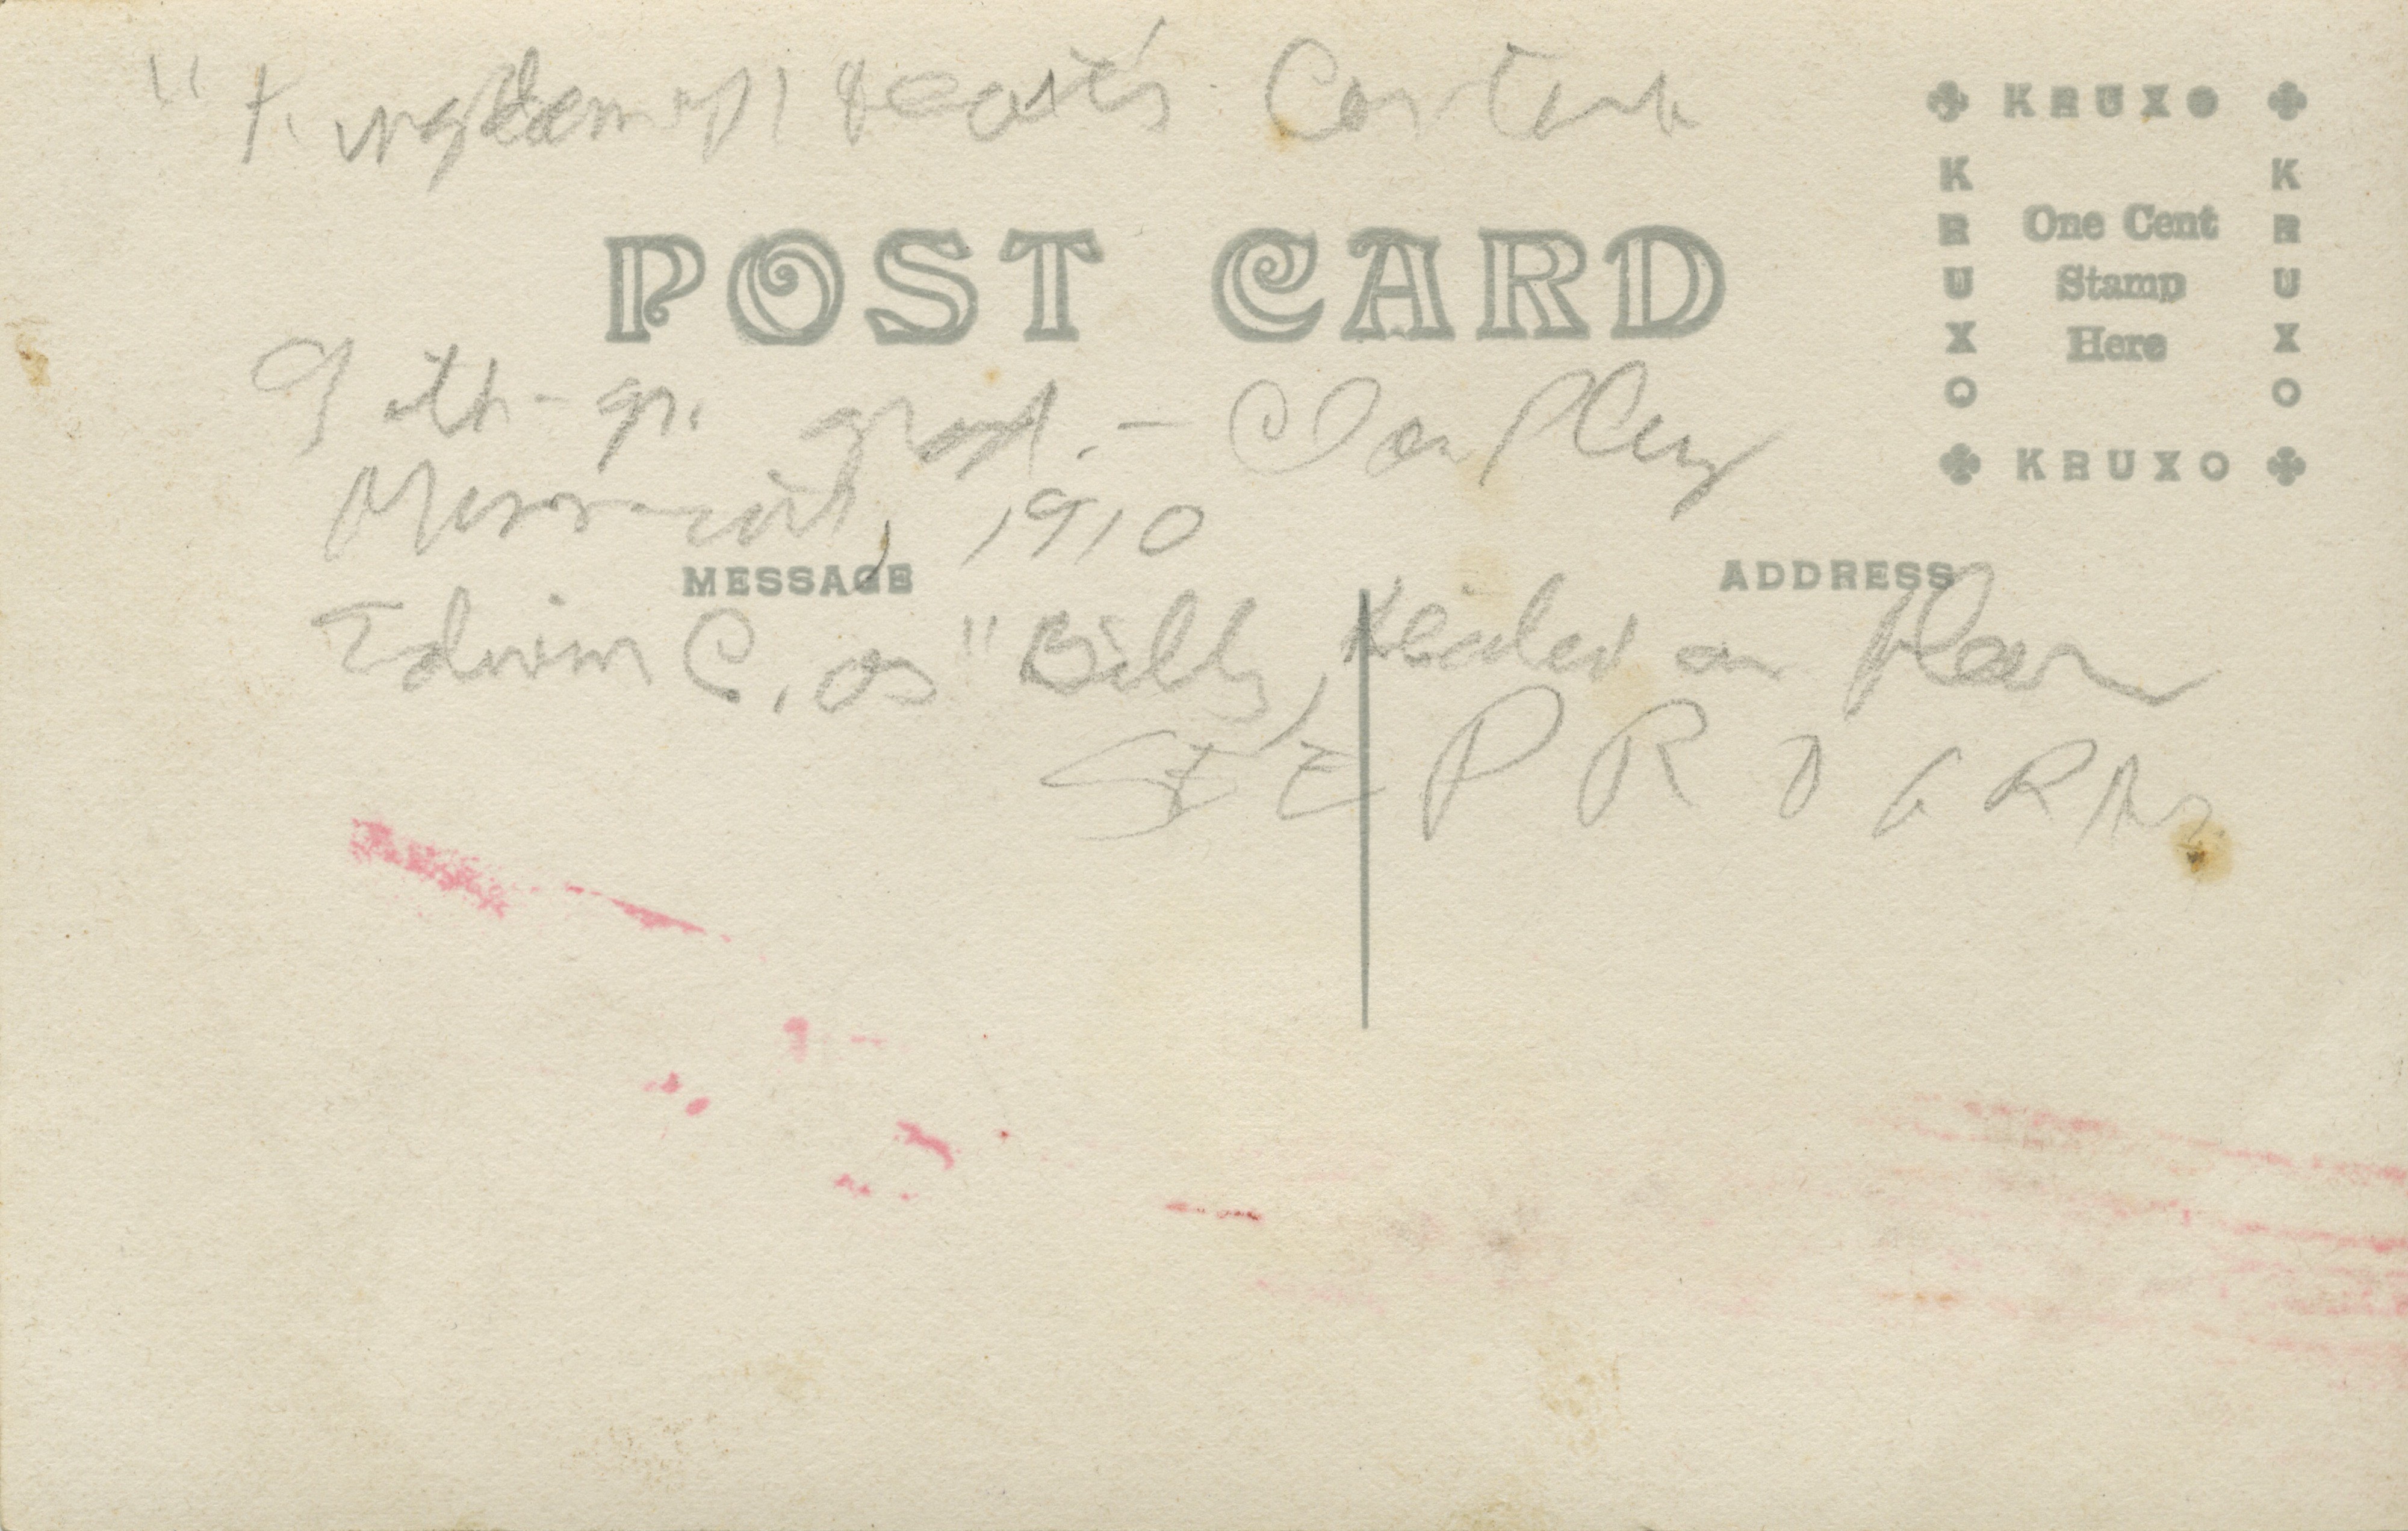 "Kingdom of Heart's Content
POST CARD
KRUXO
KRUXO
KRUXO
KRUXO
One Cent
Stamp
Here
gr. grad. - Class Play
1910
MESSAGE
ADDRESS
Edwin C. as "Billy, seated on floor
SEE PROGRAM